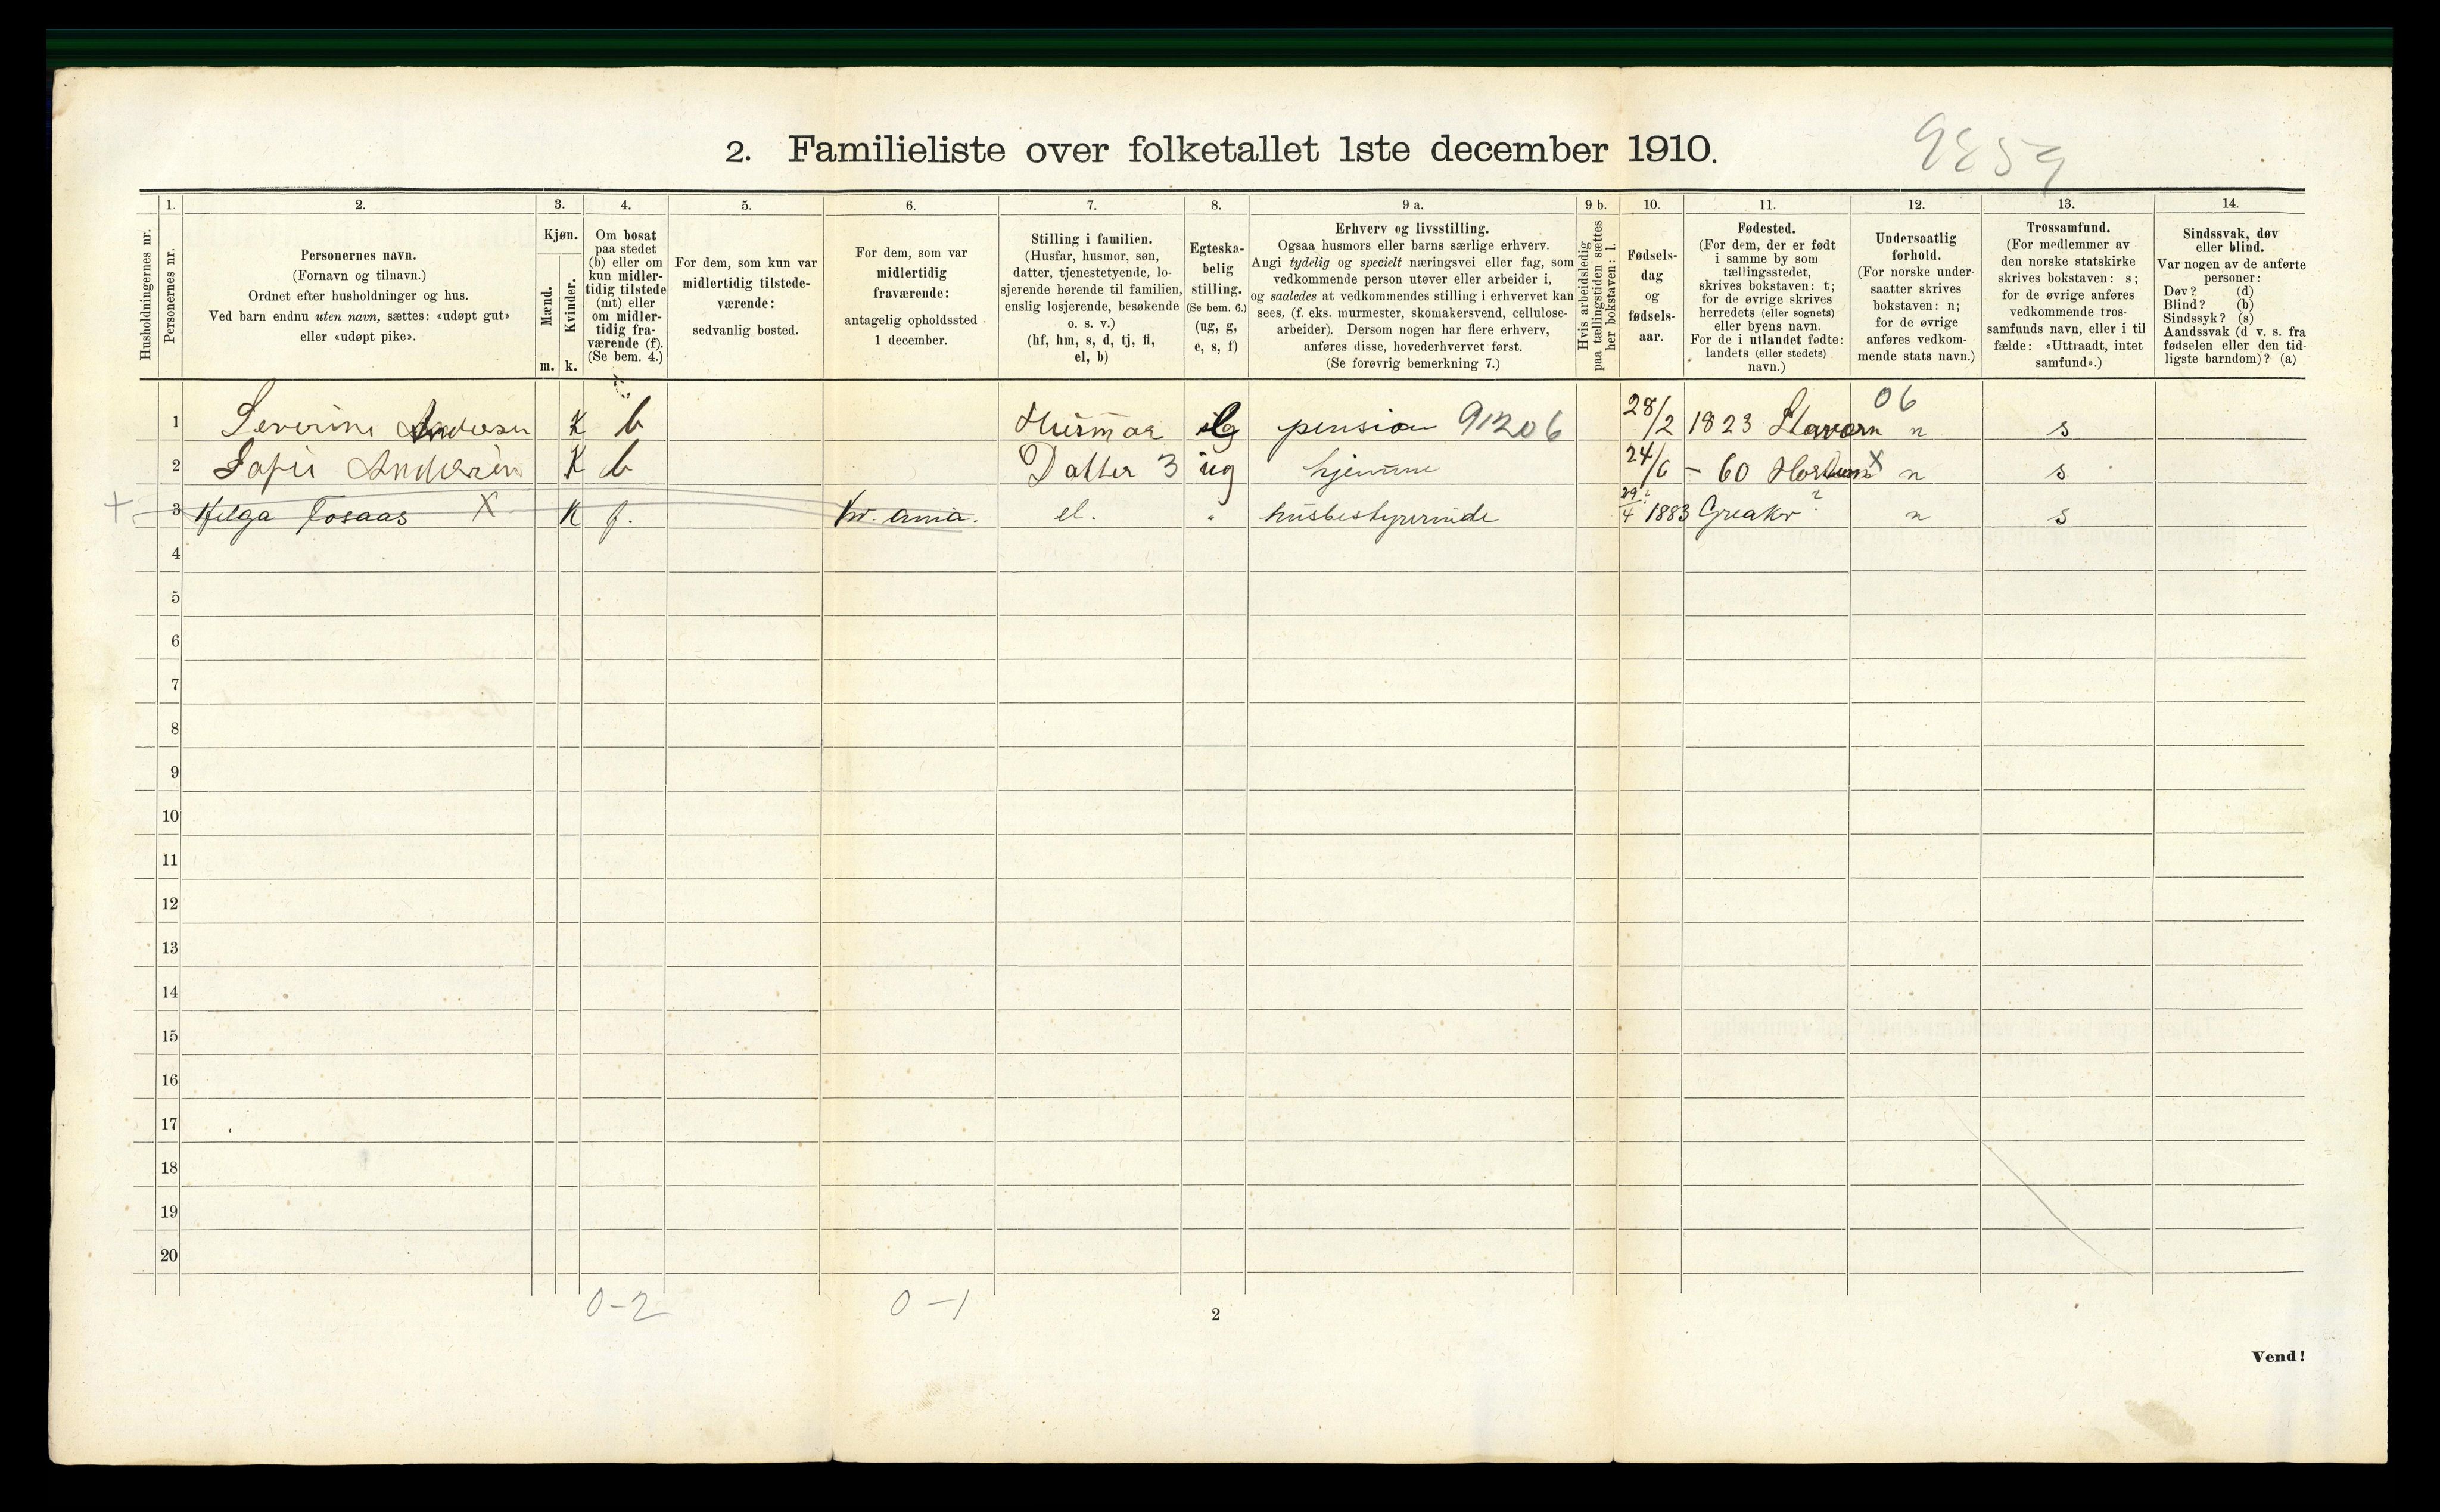 2. Familieliste over folketallet 1ste december 1910.
9859
Husholdningernes nr.
1.
Personernes nr.
2.
Personernes navn.
(Fornavn og tilnavn.)
Ordnet efter husholdninger og hus.
Ved barn endnu uten navn, sættes: «udøpt gut»
eller «udøpt pike».
3.
Kjøn.
Mænd.
Kvinder.
m. k.
4.
Om bosat
paa stedet
(b) eller om
kun midler-
tidig tilstede
(mt) eller
om midler-
tidig fra-
værende (f).
(Se bem. 4.)
5.
For dem, som kun var
midlertidig tilstede-
værende:
sedvanlig bosted.
6.
For dem, som var
midlertidig
fraværende:
antagelig opholdssted
1 december.
7.
Stilling i familien.
(Husfar, husmor, søn,
datter, tjenestetyende, lo-
sjerende hørende til familien,
enslig losjerende, besøkende
o. s. v.)
(hf, hm, s, d, tj, fl,
el, b)
8.
Egteska-
belig
stilling.
(Se bem. 6.)
(ug, g,
e, s, f)
9 a.
Erhverv og livsstilling.
Ogsaa husmors eller barns særlige erhverv.
Angi tydelig og specielt næringsvei eller fag, som
vedkommende person utøver eller arbeider i,
og saaledes at vedkommendes stilling i erhvervet kan
sees, (f. eks. murmester, skomakersvend, cellulose-
arbeider). Dersom nogen har flere erhverv,
anføres disse, hovederhvervet først.
(Se forøvrig bemerkning 7.)
9 b.
Hvis arbeidsledig
paa tællingstiden sættes
her bokstaven: l.
10.
Fødsels-
dag
og
fødsels-
aar.
11.
Fødested.
(For dem, der er født
i samme by som
tællingsstedet,
skrives bokstaven: t;
for de øvrige skrives
herredets (eller sognets)
eller byens navn.
For de i utlandet fødte:
landets (eller stedets)
navn.)
12.
Undersaatlig
forhold.
(For norske under-
saatter skrives
bokstaven: n;
for de øvrige
anføres vedkom-
mende stats navn.)
13.
Trossamfund.
(For medlemmer av
den norske statskirke
skrives bokstaven: s;
for de øvrige anføres
vedkommende tros-
samfunds navn, eller i til
fælde: «Uttraadt, intet
samfund».)
14.
Sindssvak, døv
eller blind.
Var nogen av de anførte
personer:
Døv? (d)
Blind? (b)
Sindssyk? (s)
Aandssvak (d v. s. fra
fødselen eller den tid-
ligste barndom)? (a)
06
1 Severine Andersen K b Husmoa pension 91206 28/2 1823 Stavern n s
2 Sofie Andersen K b Datter 3 ug hjemme 24/6 - 60 Horten X n s
+ 3 Helga Tosaas X K f. Kr. ania. el. " husbestyrerinde 29?/4 1883 Greaker ? n s
4
5
6
7
8
9
10
11
12
13
14
15
16
17
18
19
20
0-2 0-1
2
Vend!